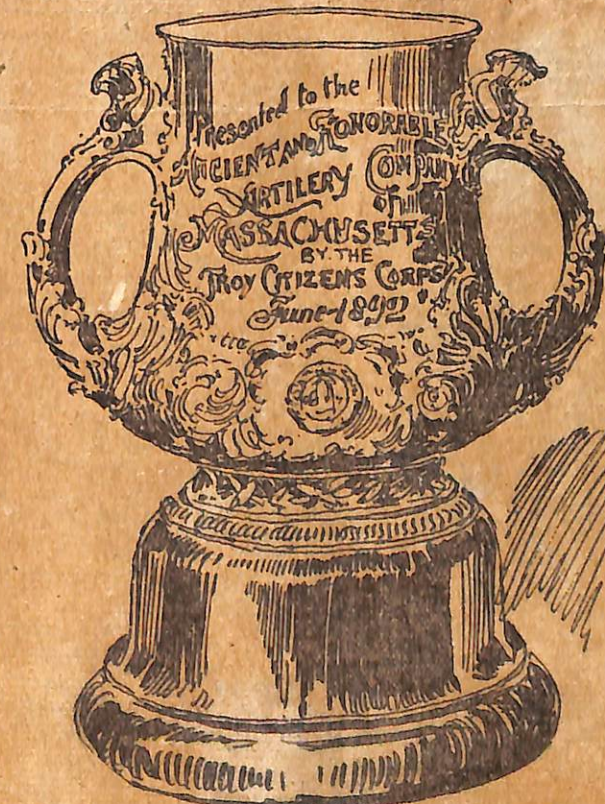 Presented to the
ANCIENT AND HONORABLE
ARTILERY COMPANY
of
MASSACHUSETTS
BY THE
TROY CITIZENS CORPS
June 1892